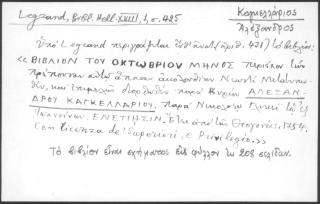 Legrand, Bibl. Hell. XVIII, 1, σ. 425
Καγκελλάριος
Ἀλέξανδρος
Ὑπὸ Legrand περιγράφεται (ἀριθ. 431) τὸ βιβλίον:
«ΒΙΒΛΙΟΝ ΤΟΥ ΟΚΤΩΒΡΙΟΥ ΜΗΝΟΣ περιέχον τὴν
πρέπουσαν αὐτῷ ἅπασαν ἀκολουθίαν
καὶ ἐπιμελῶς διορθωθὲν παρὰ Κυρίου ΑΛΕΞΑΝ-
ΔΡΟΥ ΚΑΓΚΕΛΛΑΡΙΟΥ. παρὰ Νικολάῳ Γλυκεῖ τῷ ἐξ
Ἰωαννίνων. ΕΝΕΤΙΗΣΙΝ. Ἔτει ἀπὸ τῆς Θεογονίας, 1754.
Con licenza de' Superiori, e Privilegio.»
Τὸ βιβλίον εἶναι σχήματος εἰς φύλλον ἐκ 208 σελίδων.